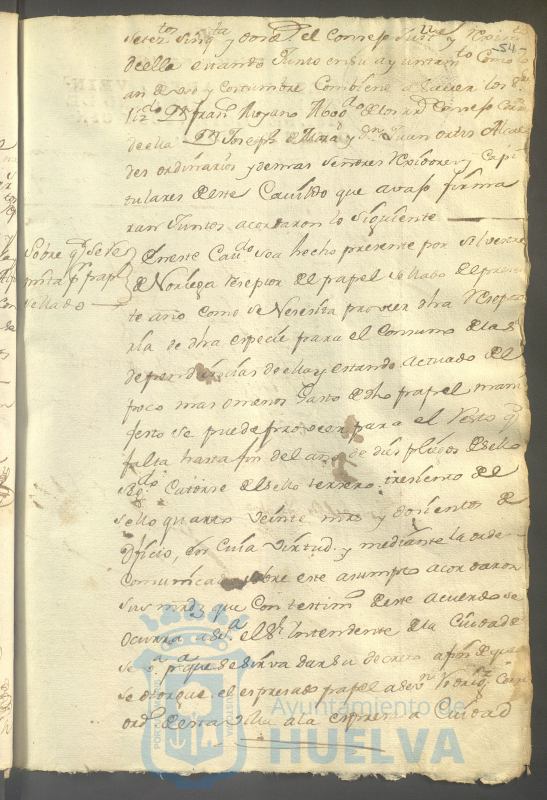 setez.tos sinq.ta y dos a el Consejo Just.a y Rejim.to
de ella estando Junto en su ayuntam.to Como lo
an de uso y Costumbre Combiene a saver los S.res
Liz.do D.n Fran.co Moyano Abog.do de los R.s Consejos Corr.or
de ella D.n Joseph de Mora y D.n Juan ortis Alcal
des ordinarios y demas señores Rexidores y Capi
tulares de este Cavildo que avajo firma
ran Juntos acordaron lo siguiente
54
Sobre q.e se re
mita p.r papel
sellado
En este Cav.do sea hecho presente por Silvestre
de Noriega reseptor del papel sellado de el presen
te año como se Neresita proveer dha Resepto
ria de dha espesie para el Consumo de las
dependensias de ella y estando actuado del
poco mas o menos Gasto de dho papel mani
festo se puede proveer para el Resto q.e
falta hasta fin del año de dies pliegos de sello
seg.do Catorse del sello terzero tresientos del
sello quarto veinte mrs y dosientos de
oficio, en Cuia virtud y mediante la orden
Comunicada sobre este asumpto acordaron
sus mrds que Con testim.o de este acuerdo se
ocurra a el S.r Intendente de la Ciudad de
Se.a p.a que se sirva dar su decreto a fin de que
se otorgue el espresado papel
de esta villa a la espresada Ciudad
Ayuntamiento de
HUELVA